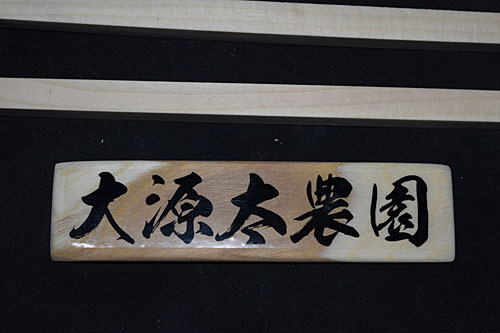 大源太農園